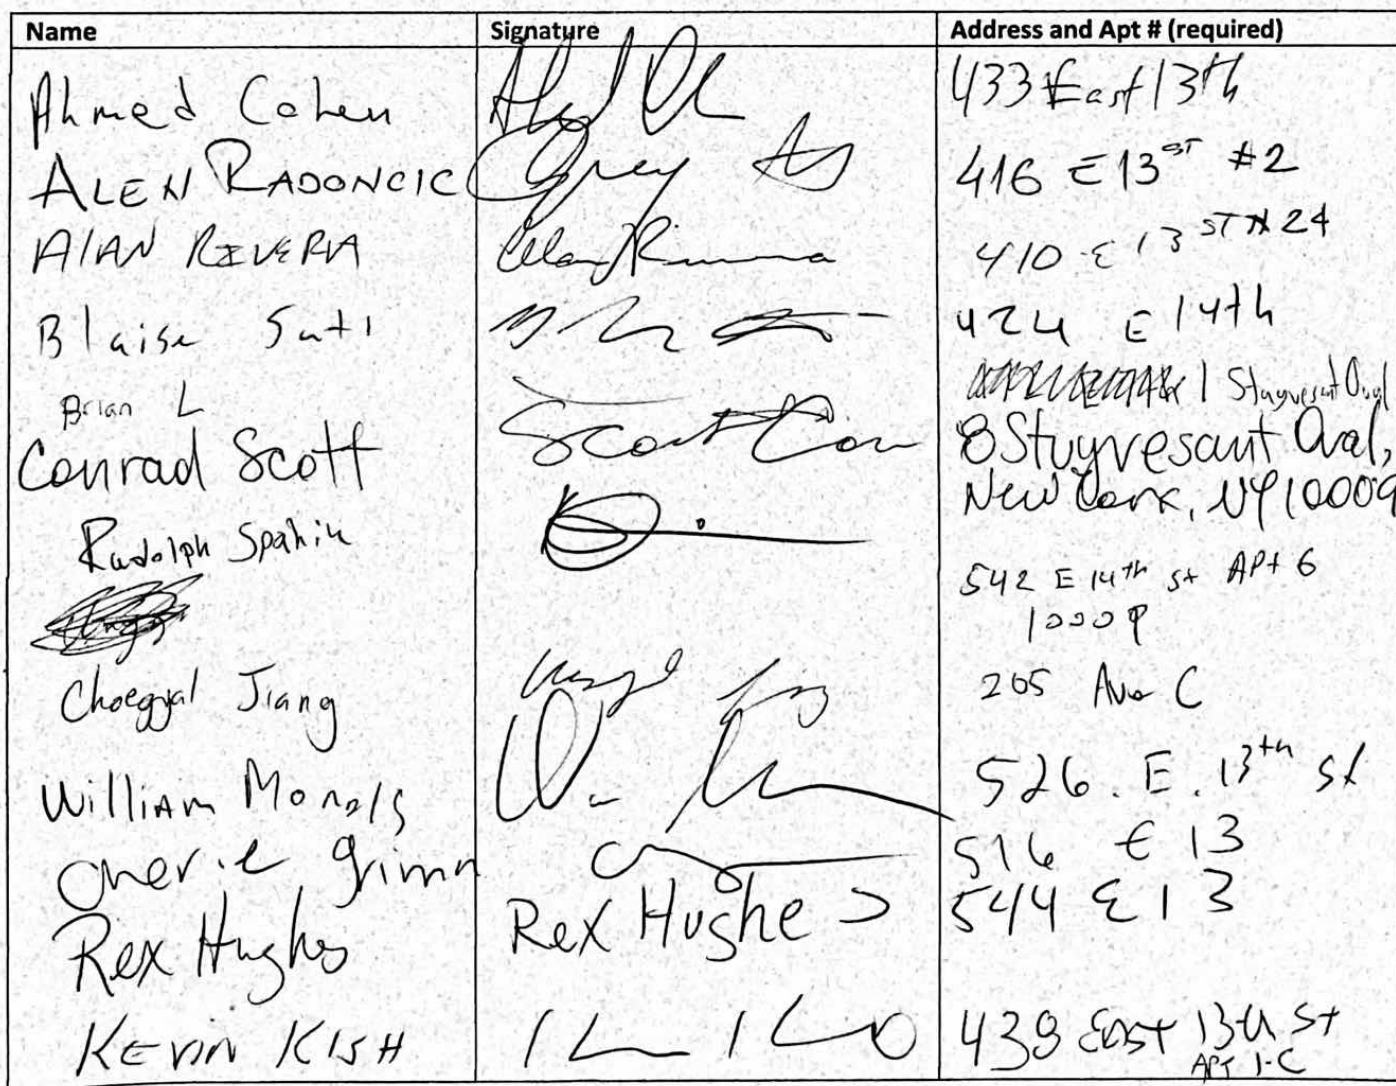 Name Signature Address and Apt # (required)
Ahmed Cohen 433 East 13th
ALEN RADONCIC 416 E 13ST #2
ALAN RIVERA 410 E 13 ST # 24
Blaise Suti 424 E 14th
Brian L 1 Stuyvesant Oval
Conrad Scott Scott Con 8 Stuyvesant Oval,
New York, NY 10009
Rudolph Spahiu
542 E 14th st APt 6
10009
Choegyal Jiang 205 Ave C
William 526. E. 13th st
Cherie grimm 516 E 13
Rex Hughes Rex Hughes 544 E 13
KEVIN KISH 438 East 13th St
APT 1-C